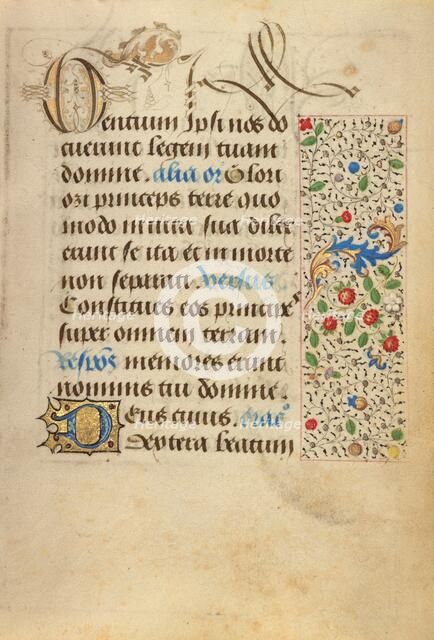 Gentium ipsi nos do
cuerunt legem tuam
domine. alia or Glori
osi principes terre quo
modo in vita sua dilex
erunt se ita et in morte
non separati versus
Constitues eos principes
super omnem terram.
Respons memores erunt
nominis tui domine.
Deus cuius. orac
dextera beatum